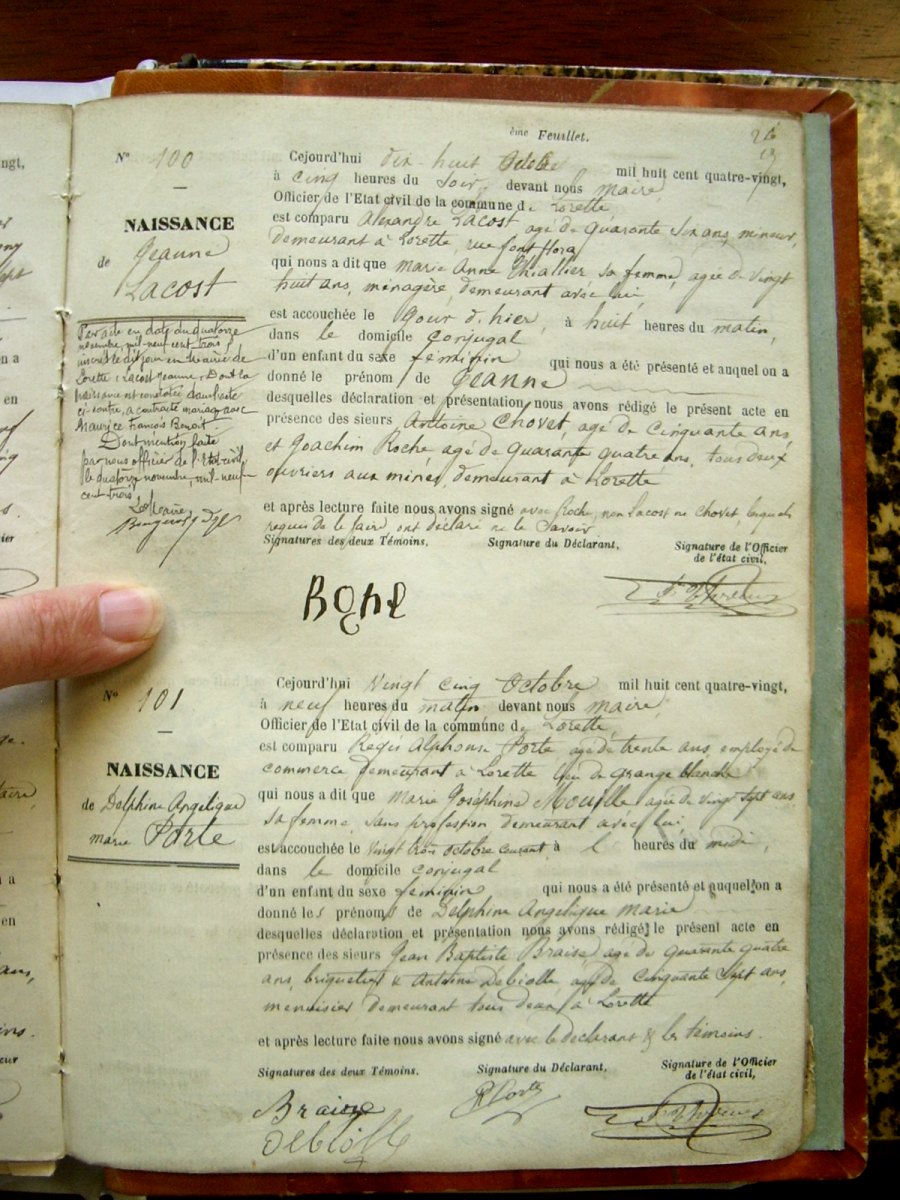 ème Feuillet.
26
13
N° 100
NAISSANCE
de Jeanne
Lacost
Par acte en date du quatorze
novembre, mil-neuf cent trois,
inscrit le dit jour en Mairie de
Lorette, Lacost Jeanne, Dont la
naissance est constatée dans l'acte
ci-contre, a contracté mariage avec
Maurice François Benoit.
Dont mention faite
par nous officier de l'Etat-civil,
le quatorze novembre, mil-neuf-
cent trois,
Le Maire,
Cejourd'hui dix-huit Octobre mil huit cent quatre-vingt,
à cinq heures du Soir, devant nous Maire,
Officier de l'Etat civil de la commune de Lorette,
est comparu Alexandre Lacost, agé de Quarante six ans, mineur,
demeurant à Lorette, rue font flora
qui nous a dit que Marie Anne Thiallier sa femme, agée de vingt
huit ans, ménagère, demeurant avec lui
est accouchée le Jour d'hier, à huit heures du matin,
dans le domicile conjugal
d'un enfant du sexe féminin qui nous a été présenté et auquel on a
donné le prénom de Jeanne
desquelles déclaration et présentation nous avons rédigé le présent acte en
présence des sieurs Antoine Chovet, agé de Cinquante ans,
et Joachim Roche agé de Quarante quatre ans, tous deux
ouvriers aux mines, demeurant à Lorette
et après lecture faite nous avons signé avec Roche, non Lacost ni Chovet, lesquels
requis de le faire, ont déclaré ne le Savoir
Signatures des deux Témoins, Signature du Déclarant, Signature de l'Officier
de l'état civil,
N° 101
NAISSANCE
de Delphine Angelique
marie Porte
Cejourd'hui Vingt cinq Octobre mil huit cent quatre-vingt,
à neuf heures du matin devant nous Maire,
Officier de l'Etat civil de la commune de Lorette,
est comparu Régis Alphonse Porte agé de trente ans, employé de
commerce demeurant à Lorette lieu de Grange blanche
qui nous a dit que Marie Joséphine Mouille agée de vingt sept ans
sa femme, sans profession demeurant avec lui,
est accouchée le vingt trois octobre courant, à l' heures du midi,
dans le domicile conjugal
d'un enfant du sexe féminin qui nous a été présenté et auquel on a
donné les prénoms de Delphine Angelique Marie
desquelles déclaration et présentation nous avons rédigé le présent acte en
présence des sieurs Jean Baptiste Braise agé de quarante quatre
ans, briquetier & Antoine Debiolle agé de Cinquante sept ans,
menuisier demeurant tous deux à Lorette
et après lecture faite nous avons signé avec le declarant & les témoins.
Signatures des deux Témoins, Signature du Déclarant, Signature de l'Officier
de l'état civil,
Braize RPorte
Debiolle